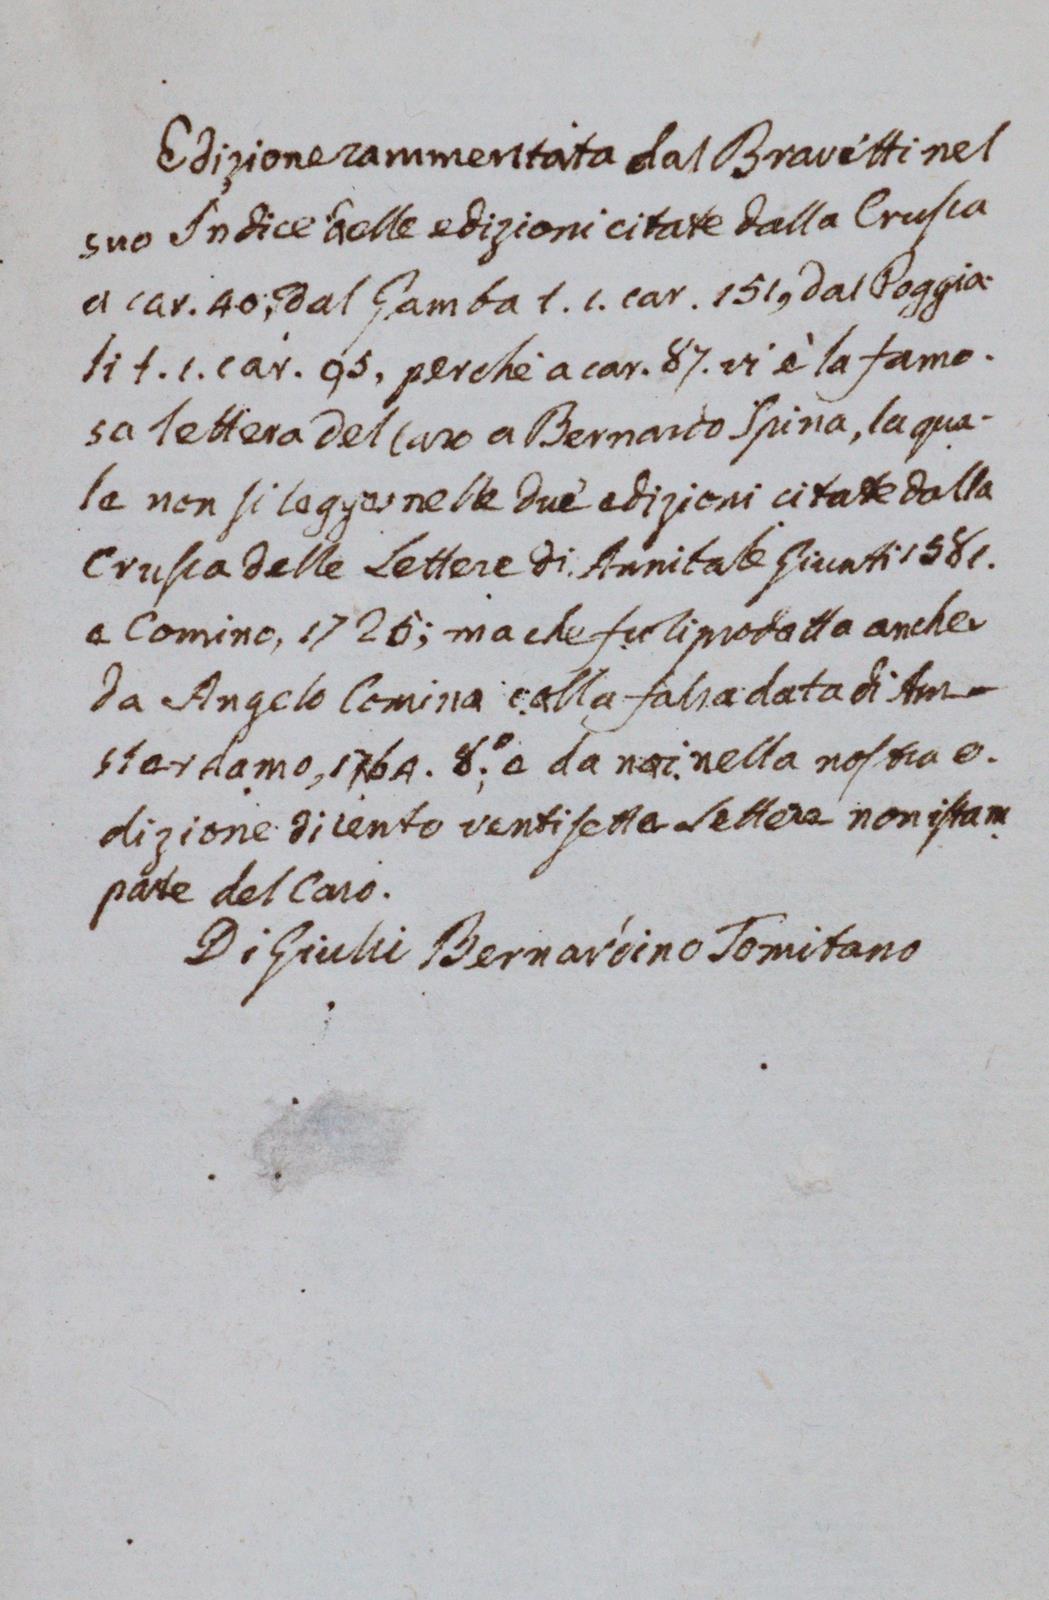 Edizione rammentata dal Bravetti nel
suo Indice delle edizioni citate dalla Crusca
a car. 40, dal Gamba t. 1. car. 151, dal Poggia-
li t. 1. car. 95, perchè a car. 87. vi è la famo-
sa lettera del Caro a Bernardo Spina, la qua-
le non si legge nelle due edizioni citate dalla
Crusca delle Lettere di Annibale Giunti 1581.
e Comino, 1725; ma che fu riprodotta anche
da Angelo Comino colla falsa data di Am-
sterdamo, 1764. 8.º e da noi nella nostra e-
dizione di cento ventisette Lettere non istam
pate del Caro.
Di Giulii Bernardino Tomitano